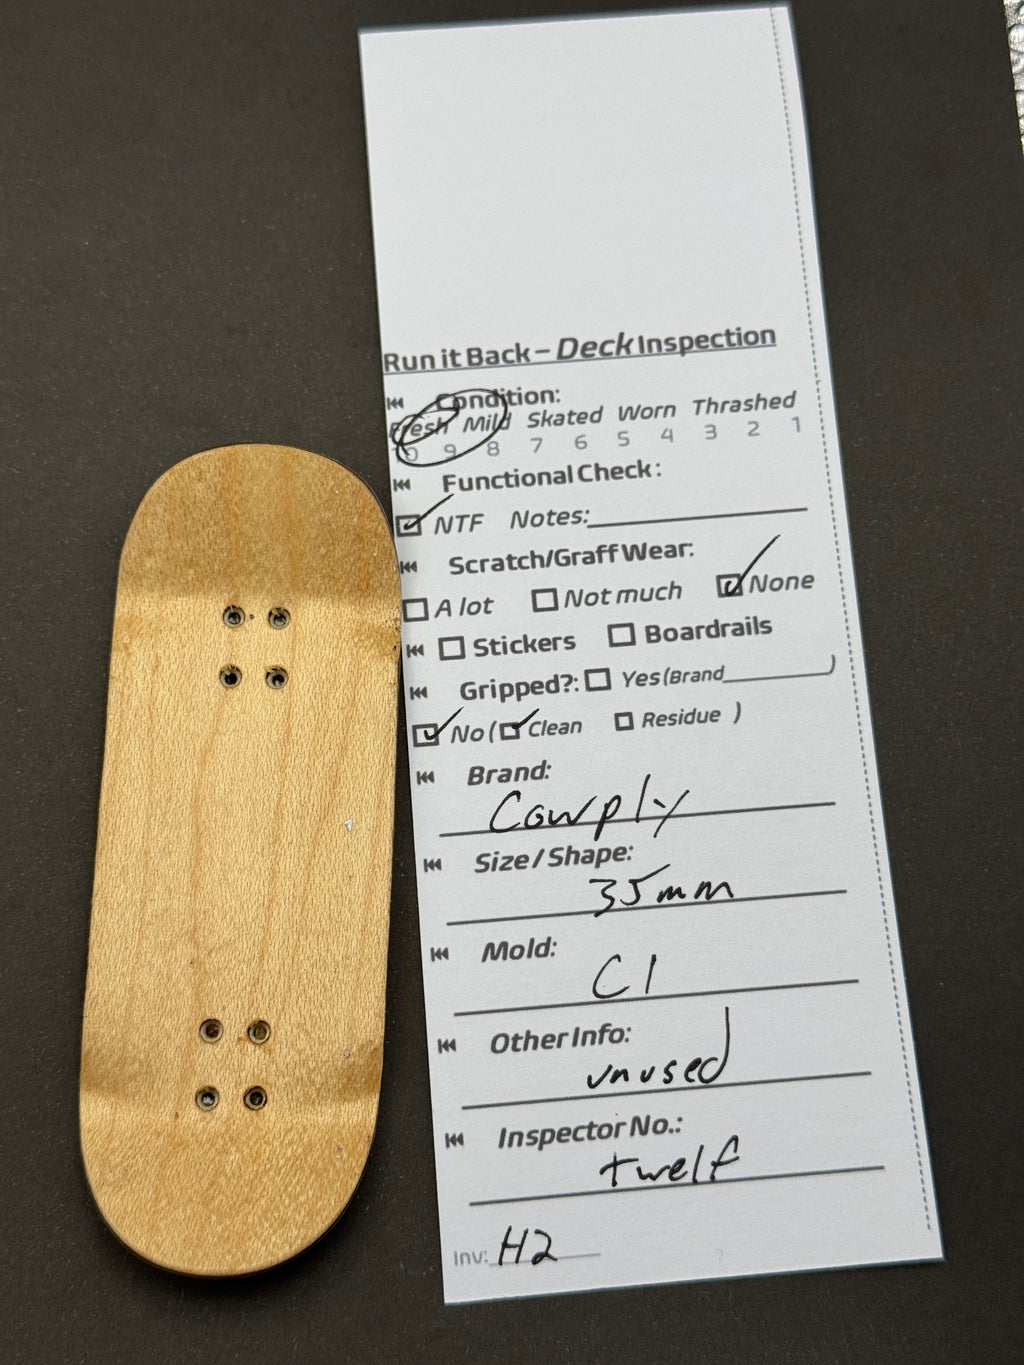 Run it Back – Deck Inspection
Condition:
Fresh Mild Skated Worn Thrashed
10 9 8 7 6 5 4 3 2 1
Functional Check:
NTF Notes:
Scratch/Graff Wear:
A lot Not much None
Stickers Boardrails
Gripped?: Yes (Brand )
No ( Clean Residue )
Brand:
Cowply
Size / Shape:
35mm
Mold:
C1
Other Info:
unused
Inspector No.:
twelf
Inv: H2